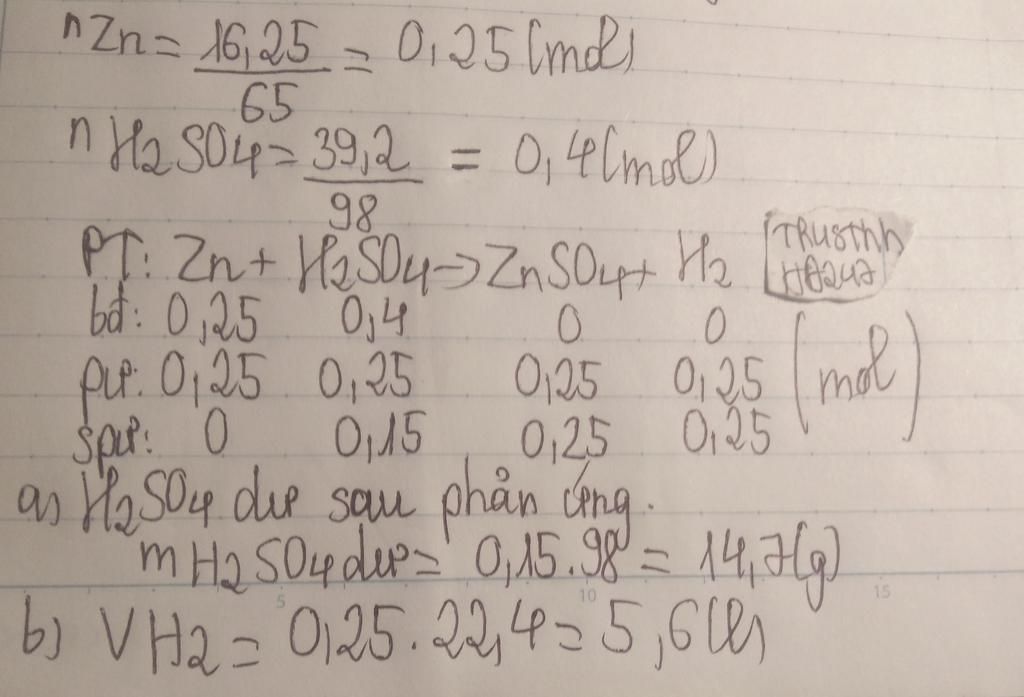 nZn = 16,25 / 65 = 0,25 (mol)
nH2SO4 = 39,2 / 98 = 0,4 (mol)
PT: Zn + H2SO4 → ZnSO4 + H2
TRUSTNN
HĐ247
bđ: 0,25 0,4 0 0
pư: 0,25 0,25 0,25 0,25 (mol)
spư: 0 0,15 0,25 0,25
a) H2SO4 dư sau phản ứng.
mH2SO4 dư = 0,15.98 = 14,7(g)
5 10 15
b) VH2 = 0,25.22,4 = 5,6(l)